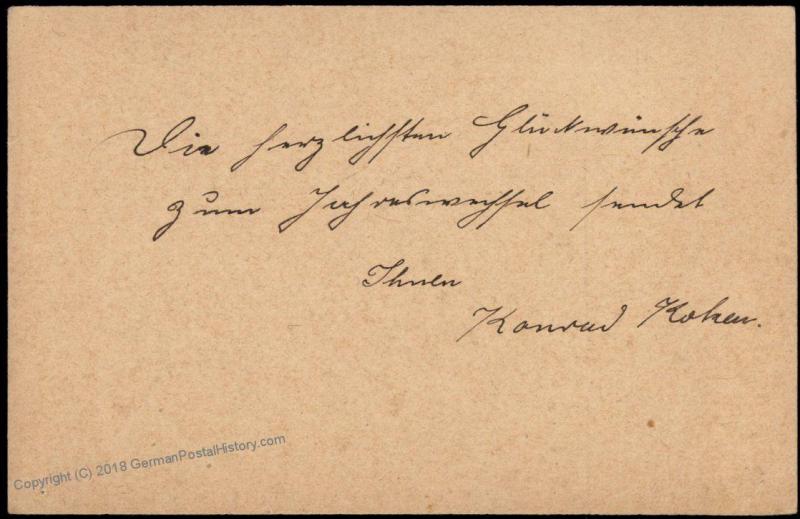 Die herzlichsten Glückwünsche
zum Jahreswechsel sendet
Ihnen
Konrad Koken.
Copyright (C) 2018 GermanPostalHistory.com